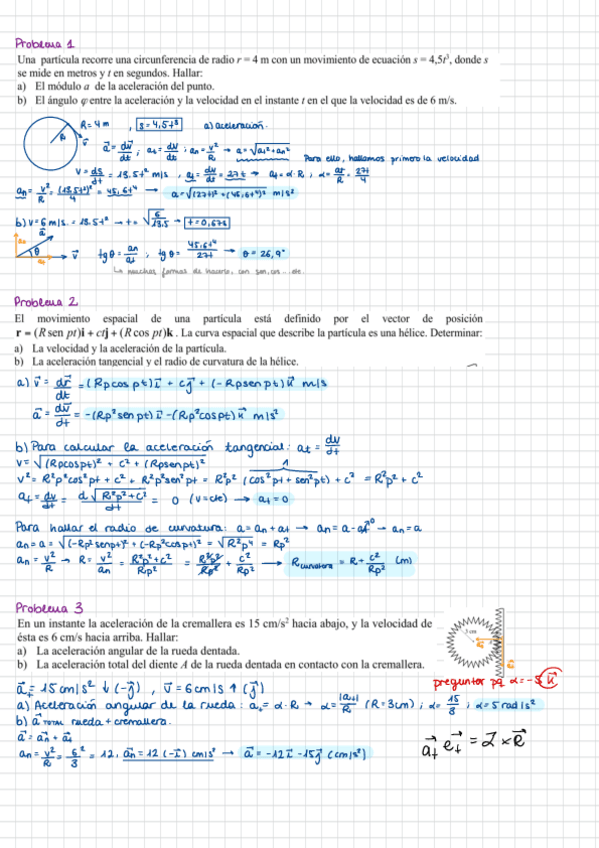 Problema 1
Una partícula recorre una circunferencia de radio r = 4 m con un movimiento de ecuación s = 4,5t³, donde s
se mide en metros y t en segundos. Hallar:
a) El módulo a de la aceleración del punto.
b) El ángulo φ entre la aceleración y la velocidad en el instante t en el que la velocidad es de 6 m/s.
R = 4m , s = 4,5t³ a) aceleración.
R v⃗ a⃗ = dv⃗/dt ; at = dv/dt ; an = v²/R → a = √(at² + an²)
Para ello, hallamos primero la velocidad
v = ds/dt = 13.5t² m/s , at = dv/dt = 27t → at = α·R , α = at/R = 27t/4
an = v²/R = (13,5t²)²/4 = 45,6t⁴ → a = √((27t)² + (45,6t⁴)²) m/s²
b) v = 6 m/s. = 13.5t² → t = √(6/13.5) → t = 0,67s
a⃗ θ v⃗ tg θ = an/at , tg θ = 45,6t⁴/27t → θ = 26,9°
↳ muchas formas de hacerlo, con sen, cos ... etc.
Problema 2
El movimiento espacial de una partícula está definido por el vector de posición
r = (R sen pt)i + ctj + (R cos pt)k . La curva espacial que describe la partícula es una hélice. Determinar:
a) La velocidad y la aceleración de la partícula.
b) La aceleración tangencial y el radio de curvatura de la hélice.
a) v⃗ = dr⃗/dt = (Rp cos pt) i⃗ + c j⃗ + (-Rp sen pt) k⃗ m/s
a⃗ = dv⃗/dt = -(Rp² sen pt) i⃗ - (Rp² cos pt) k⃗ m/s²
b) Para calcular la aceleración tangencial: at = dv/dt
v = √((Rp cos pt)² + c² + (Rp sen pt)²) 1
v² = R²p² cos² pt + c² + R²p² sen² pt = R²p² (cos² pt + sen² pt) + c² = R²p² + c²
at = dv/dt = d√(R²p² + c²)/dt = 0 (v = cte) → at = 0
Para hallar el radio de curvatura: a = an + at → an = a - at⁰ → an = a
an = a = √((-Rp² sen pt)² + (-Rp² cos pt)²) = √(R²p⁴) = Rp²
an = v²/R → R = v²/an = (R²p² + c²)/Rp² = R²p²/Rp² + c²/Rp² → R curvatura = R + c²/Rp² (m)
Problema 3
En un instante la aceleración de la cremallera es 15 cm/s² hacia abajo, y la velocidad de
ésta es 6 cm/s hacia arriba. Hallar:
a) La aceleración angular de la rueda dentada.
b) La aceleración total del diente A de la rueda dentada en contacto con la cremallera.
3 cm
preguntar pq α = -5 k⃗
a⃗t = 15 cm/s² ↓ (-j⃗) , v⃗ = 6 cm/s ↑ (j⃗)
a) Aceleración angular de la rueda: at = α·R → α = |at|/R (R = 3cm) ; α = 15/3 ; α = 5 rad/s²
b) a⃗ TOTAL rueda + cremallera.
a⃗ = a⃗n + a⃗t
an = v²/R = 6²/3 = 12. a⃗n = 12 (-i⃗) cm/s² → a⃗ = -12 i⃗ - 15 j⃗ (cm/s²)
a⃗t e⃗t = α⃗ × R⃗